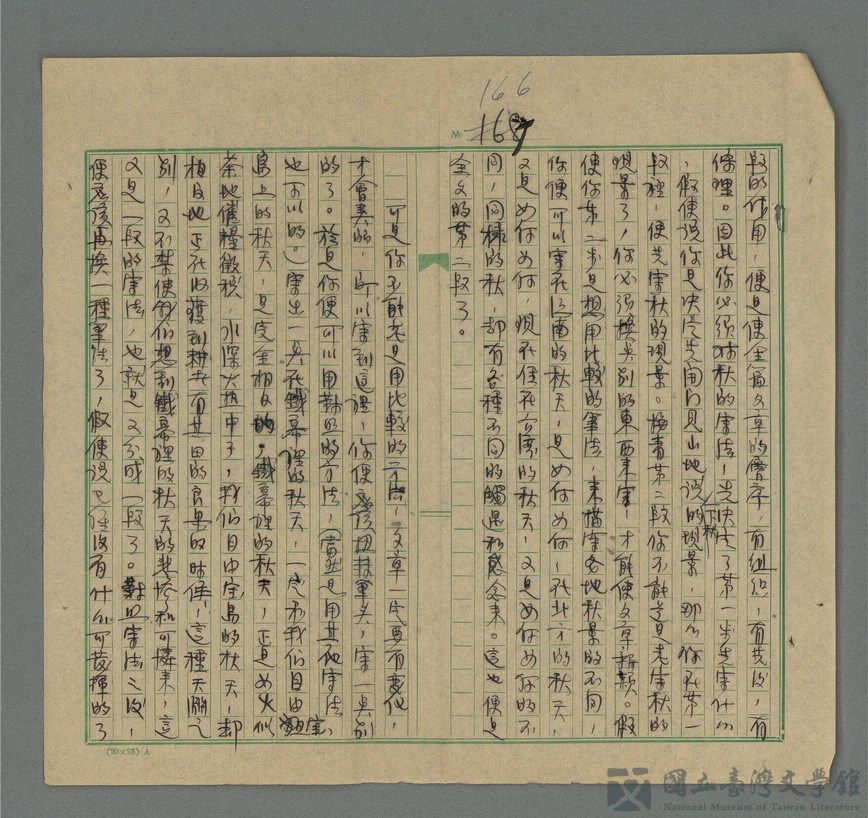 166
No 168
段的作用，便是使全篇文章的層序，有組織，有先後，有
條理。因此你必須對秋的寫法，先決定了第一步先寫什么
，假使說你是決定先開門見山地談秋的現景，那么你在第一
段裡，便先寫秋的現景。接著第二段你不能老是光寫秋的
現景了，你必須換點別的東西來寫，才能使文章新穎。假
使你第二步是想用比較的筆法，來描寫各地秋景的不同，
你便可以寫在江南的秋天，是如何如何，在北方的秋天，
又是如何如何，現在住在台灣的秋天，又是如何如何的不
同，同樣的秋，却有各種不同的觸景和感念來。這也便是
全文的第二段了。
可是你不能老是用比較的方法，文章一定要有變化，
才會美的，所以寫到這裡，你便應該扭轉筆头，寫一點別
的了。於是你便可以用對照的方法，（當然是用其他寫法
也可以的。）寫出一點在鐵幕裡的秋天，一定和我們自由寶
島上的秋天，是完全相反的。鐵幕裡的秋天，正是如火似
荼地催糧徵稅，水深火热中子，我們自由宝島的秋天，却
相反地正在收獲到耕者有其田的良果的时候，這種天朗之
別，又不禁使我們想到鐵幕裡的秋天的悲慘和可憐來，這
又是一段的寫法，也就是又分成一段了。對照寫法之後，
便应该再換一種筆法了，假使說已經沒有什么可發揮的了
(20×25) A
國立臺灣文學館
National Museum of Taiwan Literature